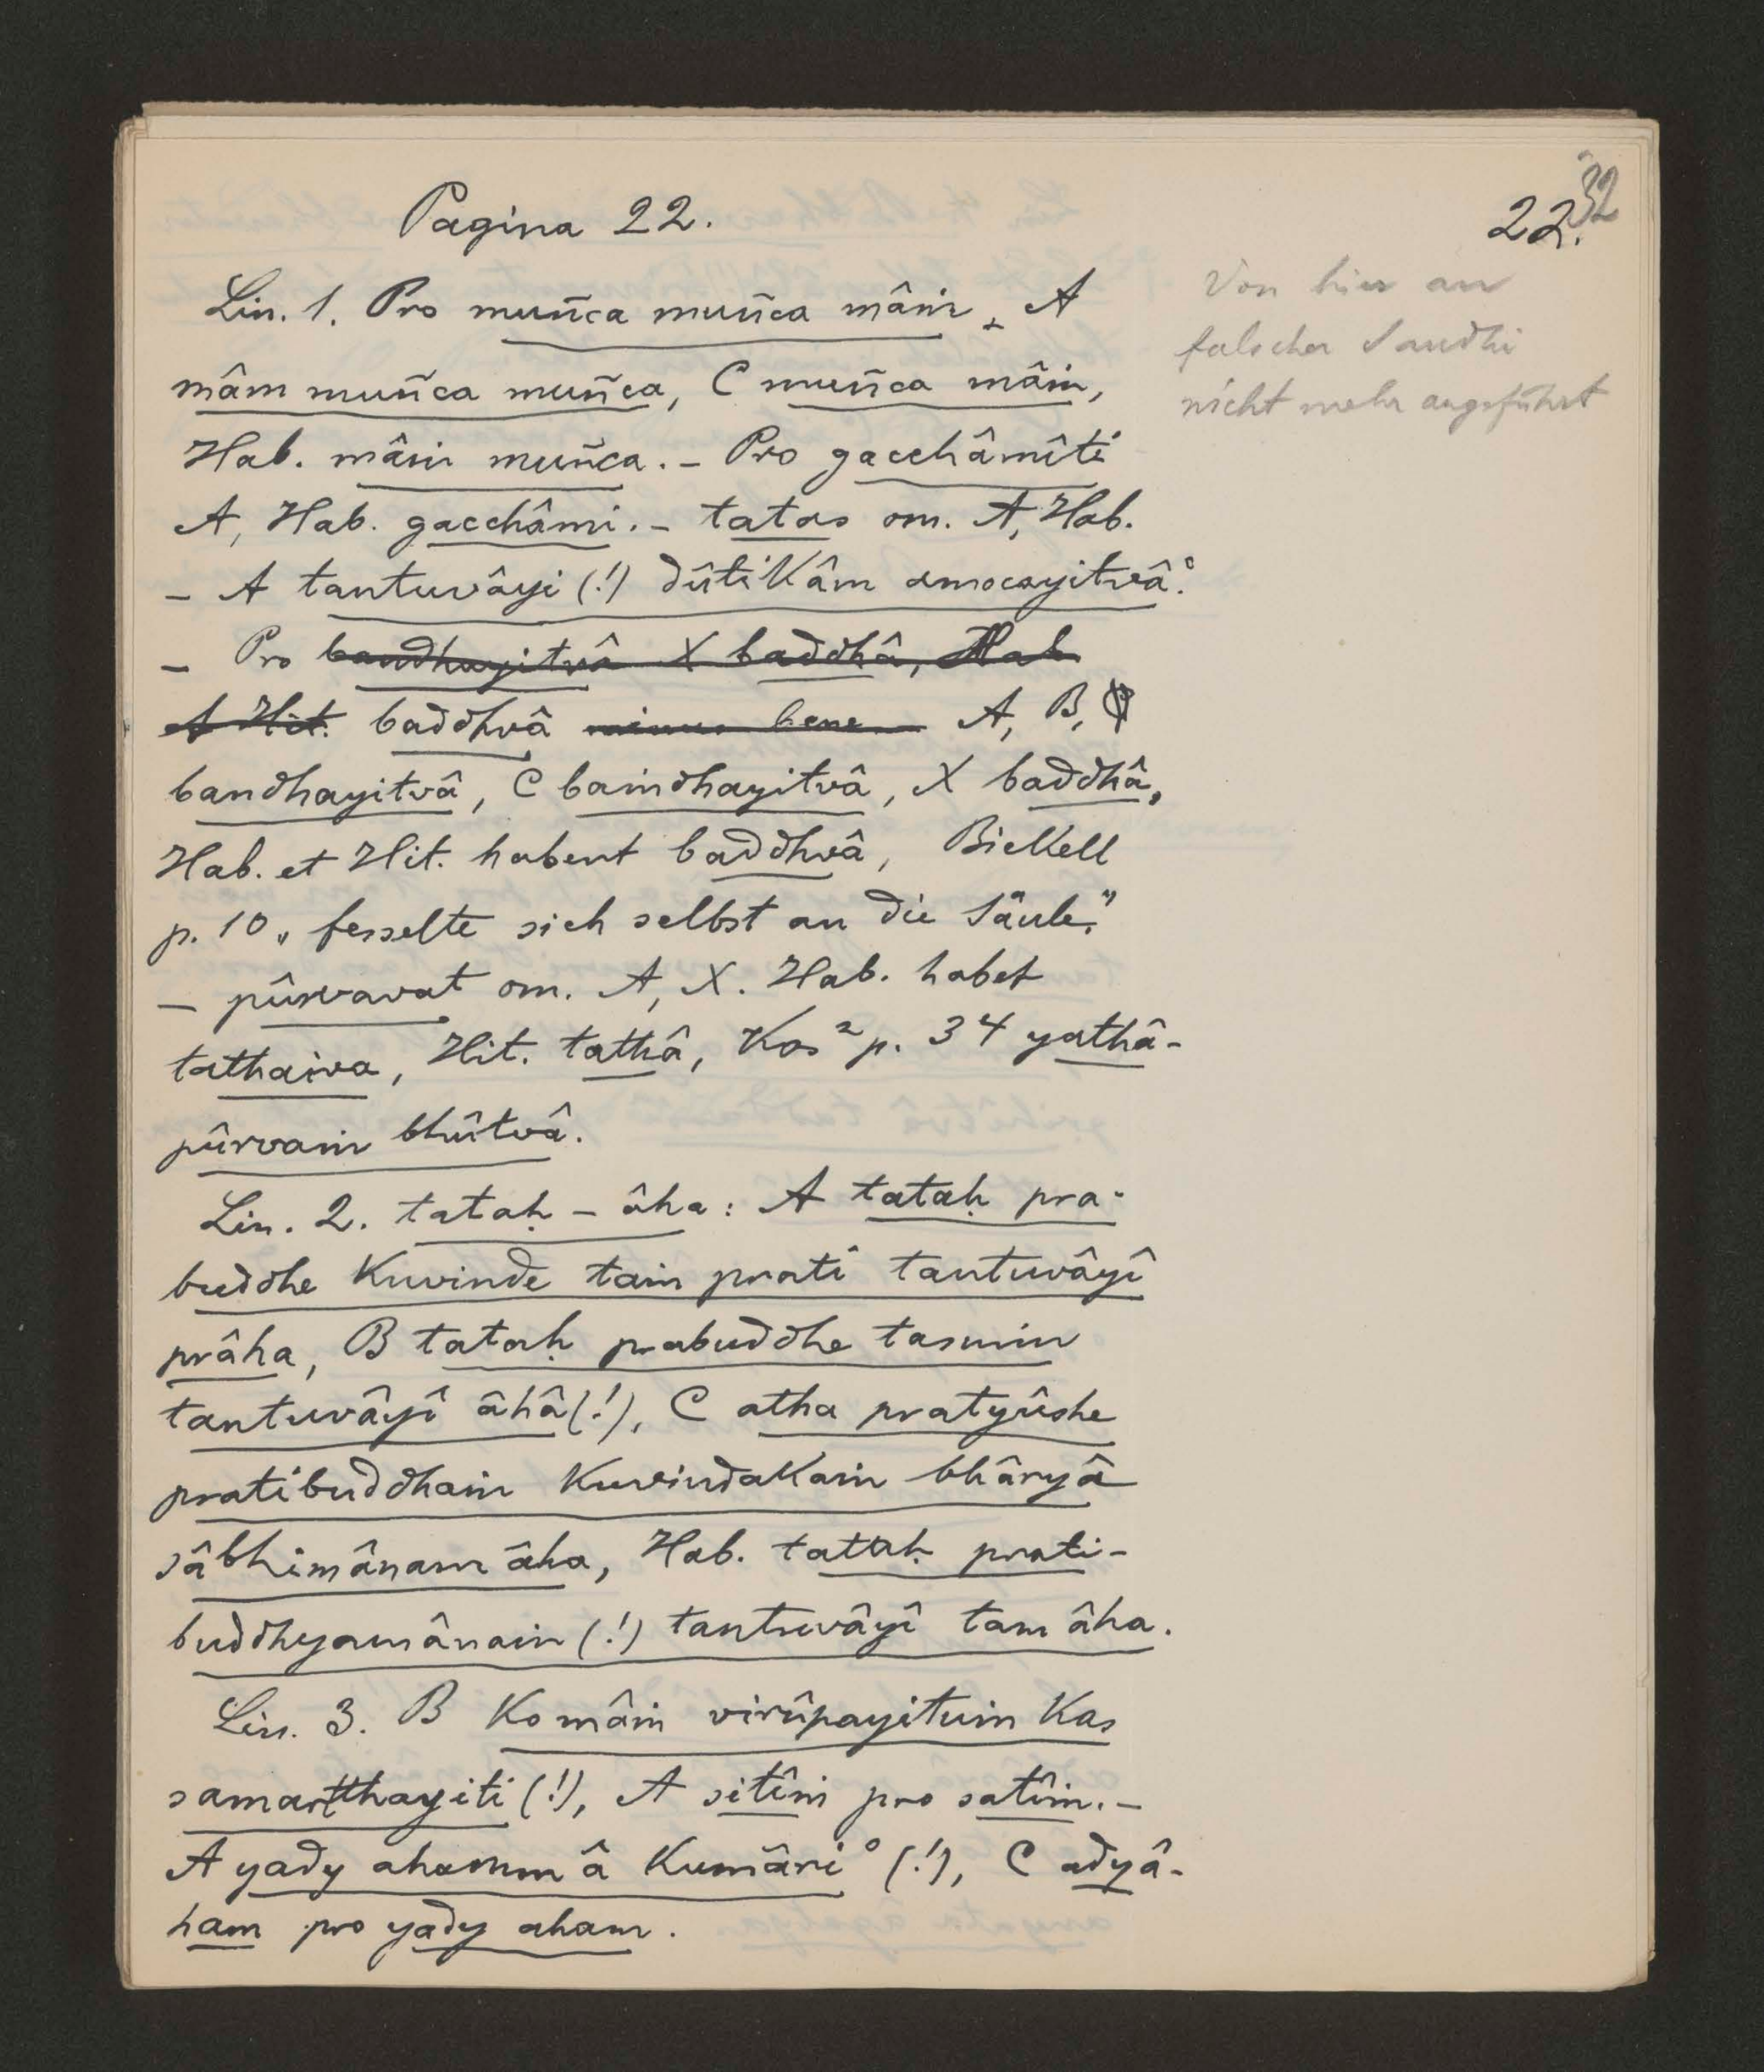 Pagina 22.
22.
32
Von hier an
falscher Sandhi
nicht mehr angeführt
Lin. 1. Pro muñca muñca mâṁ, A
mâm muñca muñca, C muñca mâṁ,
Hab. mâṁ muñca. – Pro gacchâmîti
A, Hab. gacchâmi. – tatas om. A, Hab.
– A tantuvâyi (!) dûtikâm amocayitvâ°.
– Pro bandhayitvâ X baddhâ, Hab
A Hit. baddhvâ minus bene A, B,
bandhayitvâ, C baṁdhayitvâ, X baddhâ,
Hab. et Hit. habent baddhvâ, Bickell
p. 10 „fesselte sich selbst an die Säule."
– pûrvavat om. A, X. Hab. habet
tathaiva, Hit. tathâ, Kos² p. 34 yathâ-
pûrvaṁ bhûtvâ.
Lin. 2. tataḥ – âha: A tataḥ pra-
buddhe Kuvinde taṁ prati tantuvâyî
prâha, B tataḥ prabuddhe tasmin
tantuvâyî âhâ (!), C atha pratyûshe
pratibuddhaṁ Kuvindakaṁ bhâryâ
sâbhimânam âha, Hab. tataḥ prati-
buddhyamânaṁ (!) tantuvâyî tam âha.
Lin. 3. B Ko mâṁ virûpayituṁ Kas
samartthayiti (!), A sitîṁ pro satîṁ. –
A yady ahammâ Kumâri° (!), C adyâ-
ham pro yady aham.